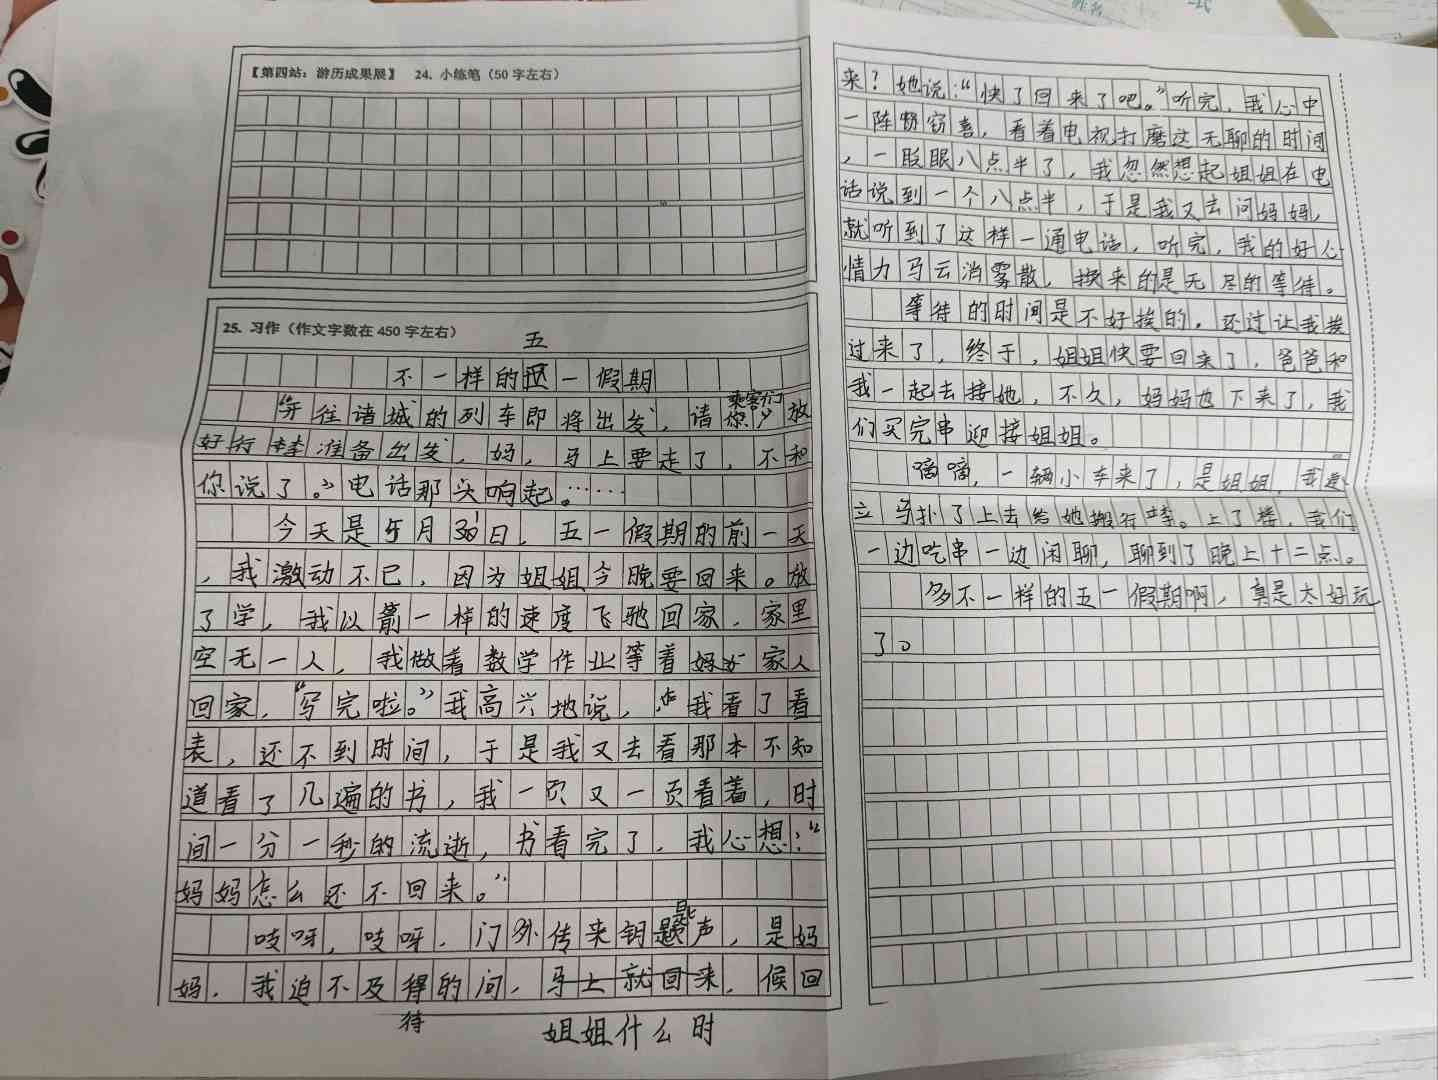 【第四站：游历成果展】 24. 小练笔（50字左右）
25. 习作（作文字数在 450 字左右）
五
不一样的一假期
乘客们
“开往诸城的列车即将出发，请您放
好行李准备出发，妈，马上要走了，不和
你说了。”电话那头响起。……
今天是月30日，五一假期的前一天
，我激动不已，因为姐姐今晚要回来。放
了学，我以箭一样的速度飞驰回家，家里
空无一人，我做着数学作业等着家人
回家，“写完啦。”我高兴地说，我看了看
表，还不到时间，于是我又去看那本不知
道看了几遍的书，我一页又一页看着，时
间一分一秒的流逝，书看完了，我心想：“
妈妈怎么还不回来。”
匙
吱呀，吱呀，门外传来钥声，是妈
妈，我迫不及的问，马上就回来，候回
待
姐姐什么时
来？她说：“快了回来了吧。”听完，我心中
一阵窃喜，看着电视打磨这无聊的时间
，一眨眼八点半了，我忽然想起姐姐在电
话说到一个八点半，于是我又去问妈妈，
就听到了这样一通电话，听完，我的好心
情力马云消雾散，换来的是无尽的等待。
等待的时间是不好挨的，还过让我挨
过来了，终于，姐姐快要回来了，爸爸和
我一起去接她，不久，妈妈也下来了，我
们买完串迎接姐姐。
嘀嘀，一辆小车来了，是姐姐，我
立马扑了上去给她搬行李。上了楼，我们
一边吃串一边闲聊，聊到了晚上十二点。
多不一样的五一假期啊，真是太好玩
了。